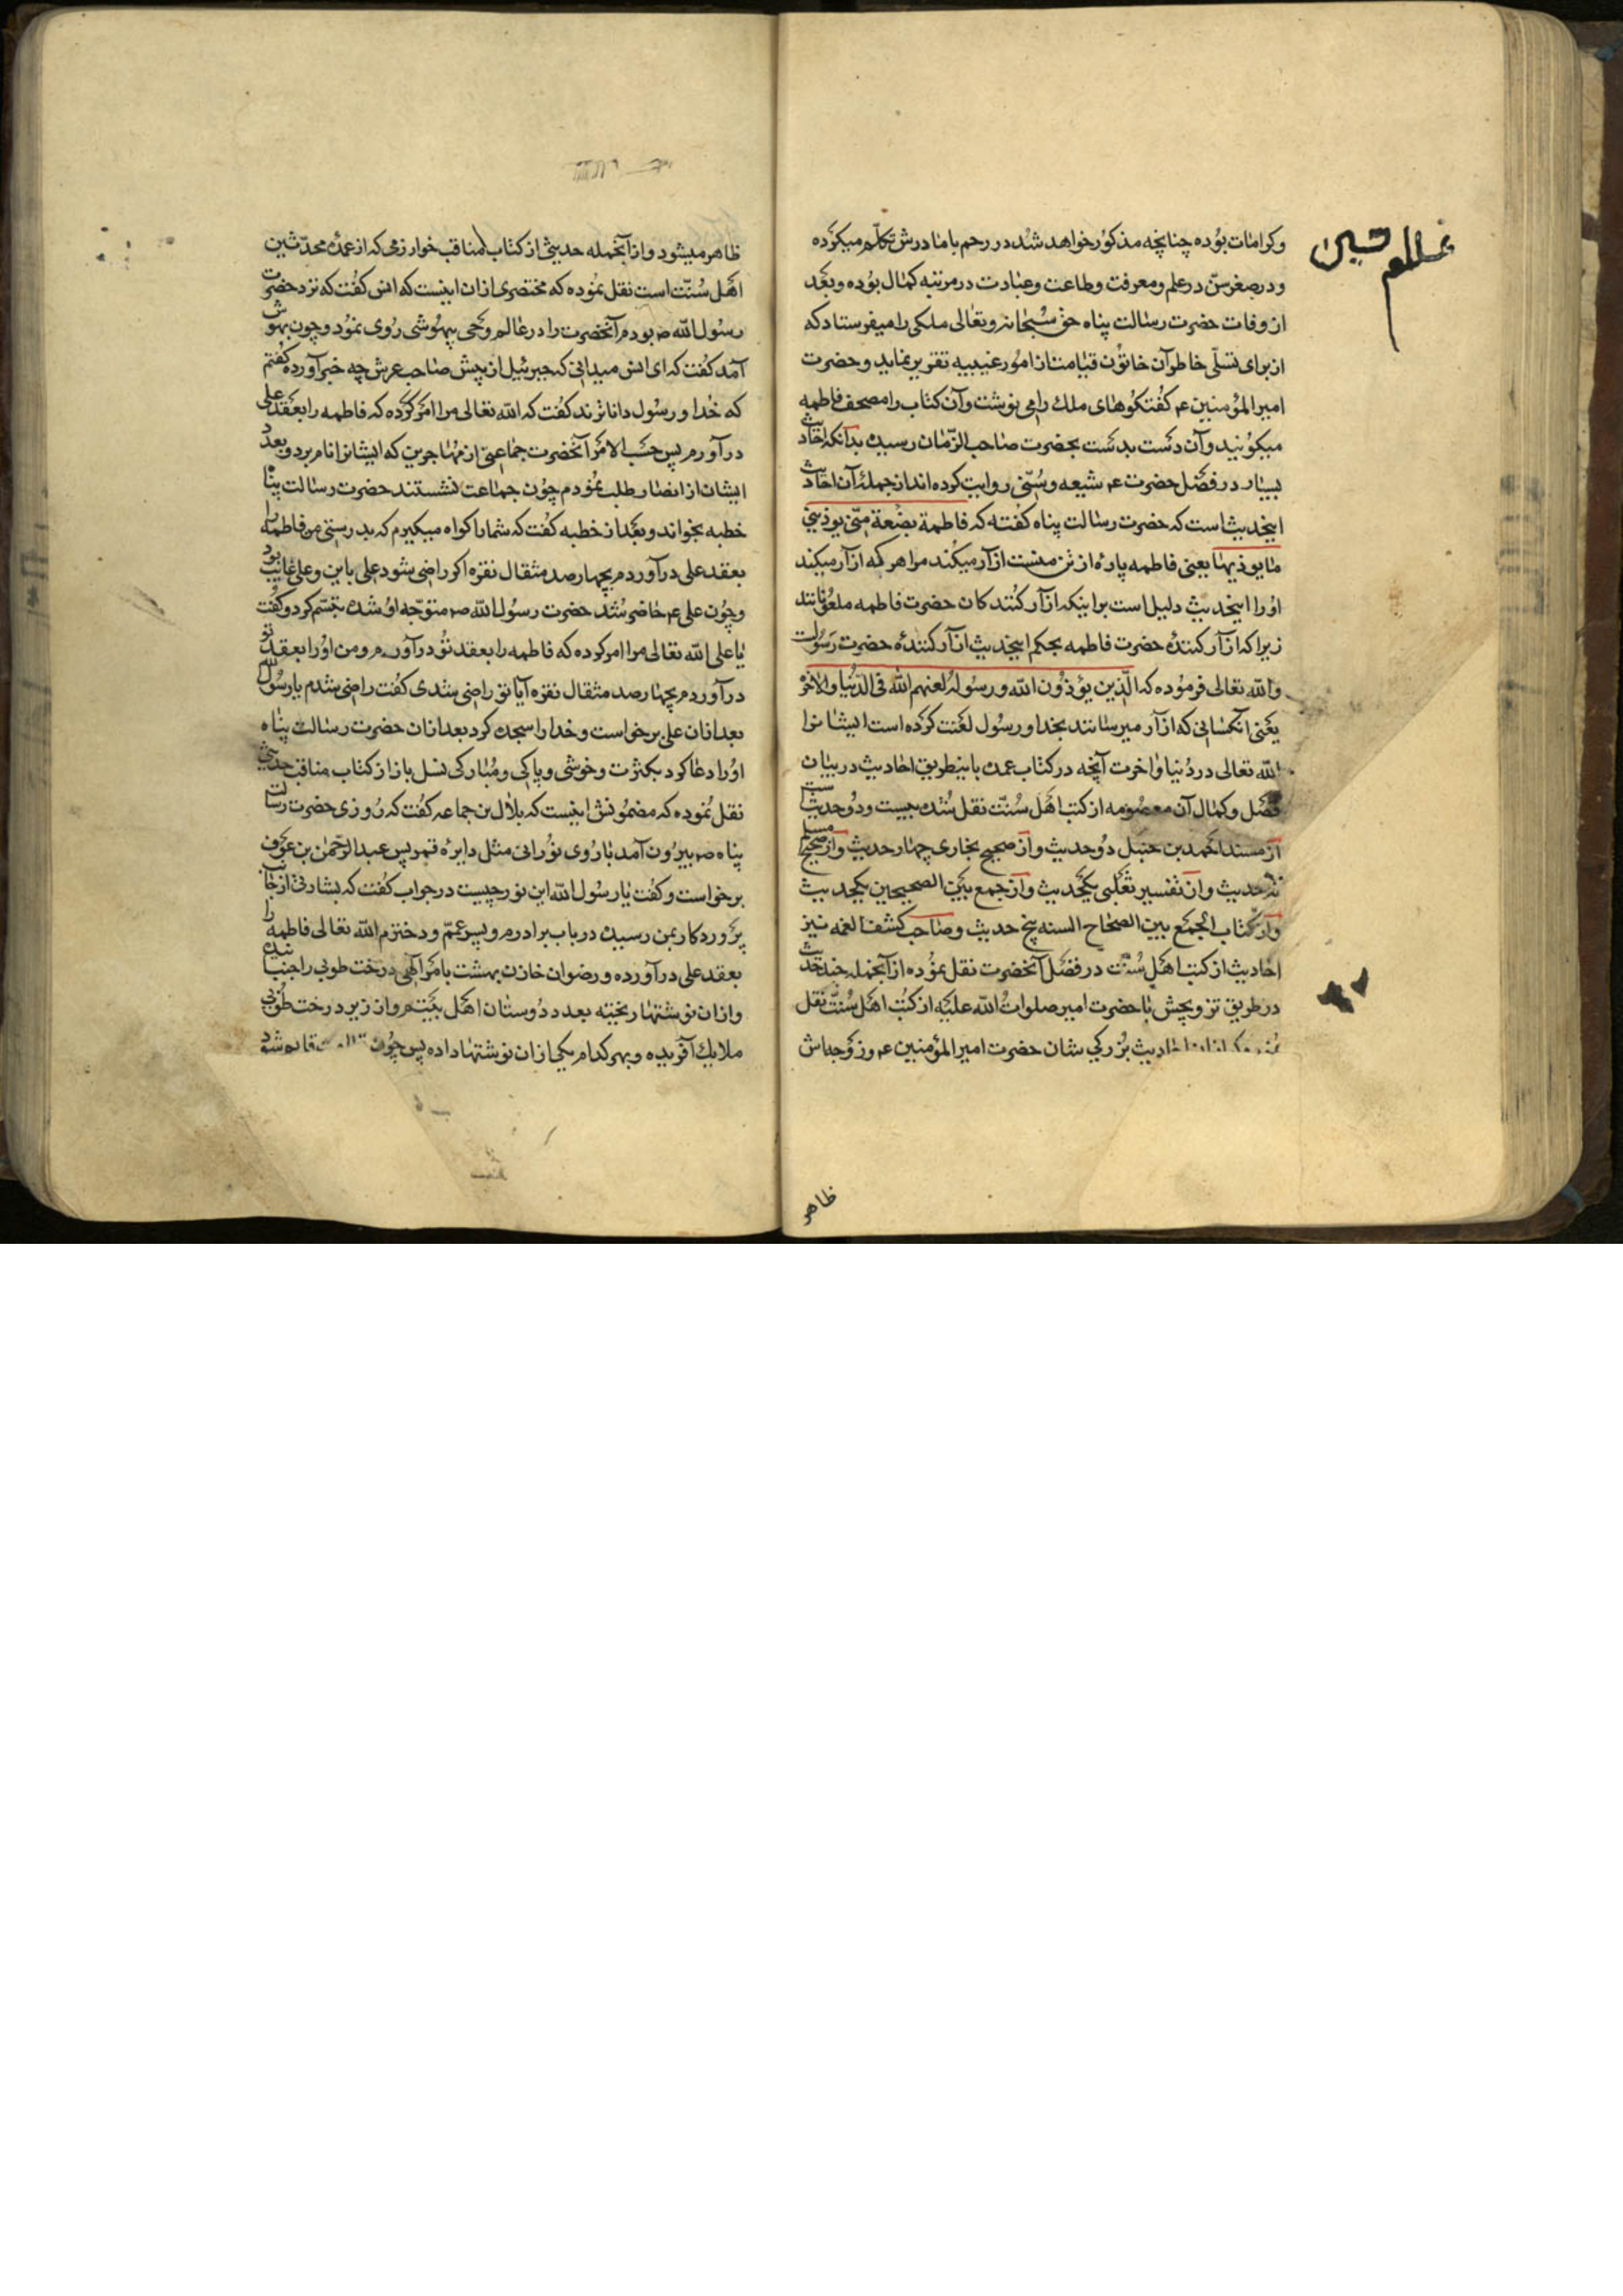 وکرامات بوده چنانچه مذکور خواهد شد در رحم با مادرش تکلم میکرده
و در صغر سن در علم و معرفت و طاعت و عبادت در مرتبه کمال بوده و بعد
از وفات حضرت رسالت پناه حق سبحانه و تعالی ملکی را میفرستاد که
از برای تسلی خاطر آن خاتون قیامت از امور غیبیه تقریر نماید و حضرت
امیر المؤمنین ع کفتکوهای ملك را می نوشت و آن کتاب را مصحف فاطمه
میکویند و آن دست بدست بحضرت صاحب الزمان رسیده بدآنکه احادیث
بسیار در فضل حضرت ع شیعه و سنی روایت کرده اند از جمله آن احادیث
اینحدیث است که حضرت رسالت پناه کفته که فاطمة بضعة منی یوذینی
ما یوذیها یعنی فاطمه پارۀ از تن منست ازآر میکند مرا هر که ازآر میکند
او را اینحدیث دلیل است بر اینکه ازآر کنندکان حضرت فاطمه ملعونانند
زیرا که ازآر کنندۀ حضرت فاطمه بحکم اینحدیث ازآر کنندۀ حضرت رسولست
و الله تعالی فرموده که الّذین یؤذون الله و رسوله لعنهم الله فی الدنیا والاخرة
یعنی انکسانی که ازآر میرسانند بخدا و رسول لعنت کرده است ایشانرا
الله تعالی در دنیا و اخرت آنچه در کتاب عمده باینطریق احادیث در بیان
فضل و کمال آن معصومه از کتب اهل سنت نقل شده بیست و دو حدیث است
از مسند احمد بن حنبل دو حدیث و از صحیح بخاری چهار حدیث و از صحیح مسلم
حدیث و از تفسیر ثعلبی یکحدیث و از جمع بین الصحیحین یکحدیث
و از کتاب الجمع بین الصحاح السته پنج حدیث و صاحب کشف الغمه نیز
احادیث از کتب اهل سنت در فضل آنحضرت نقل نموده از آنجمله چند حدیث
در طریق تزویجش با حضرت امیر صلوات الله علیه از کتب اهل سنت نقل
احادیث بزرکی شان حضرت امیر المؤمنین ع و زوجه‌اش
ظاهر
ظاهر میشود و از آنجمله حدیثی از کتاب مناقب خوارزمی که از عمدۀ محدثین
اهل سنت است نقل نموده که مختصری از ان اینست که انس کفت که نزد حضرت
رسول الله ص بودم آنحضرت را در عالم وحی بیهوشی روی نمود و چون بهوش
آمد کفت که ای انس میدانی که جبرئیل از پیش صاحب عرش چه خبر آورده کفتم
که خدا و رسول داناترند کفت که الله تعالی مرا امر کرده که فاطمه را بعقد علی
درآورم پس حسب الامر آنحضرت جماعتی از مهاجرین که ایشانرا نام برد و بعدد
ایشان از انصار طلب نمودم چون جماعت نشستند حضرت رسالت پناه
خطبه بخواند و بعد از خطبه کفت که شما را کواه میکیرم که بدرستی من فاطمه را
بعقد علی درآوردم بچهارصد مثقال نقره اکر راضی شود علی باین و علی غایب بود
و چون علی ع حاضر شد حضرت رسول الله ص متوجه او شده تبسم کرد و کفت
یا علی الله تعالی مرا امر کرده که فاطمه را بعقد تو درآورم و من او را بعقد تو
درآوردم بچهارصد مثقال نقره آیا تو راضی شدی کفت راضی شدم یا رسول الله
بعد ازان علی برخواست و خدا را سجده کرد بعد ازان حضرت رسالت پناه
او را دعا کرد بکثرت و خوشی و پاکی و مبارکی نسل باز از کتاب مناقب حدیثی
نقل نموده که مضمونش اینست که بلال بن جماعه کفت که روزی حضرت رسالت
پناه ص بیرون آمد با روی نورانی مثل دایرۀ قمر پس عبد الرحمن بن عوف
برخواست و کفت یا رسول الله این نور چیست در جواب کفت که بشارتی از جانب
پروردکار بمن رسیده در باب برادرم و پسر عمّ و دخترم الله تعالی فاطمه را
بعقد علی درآورده و رضوان خازن بهشت بامر الهی درخت طوبی را جنبانیده
و ازان نوشتها ریخته بعدد دوستان اهل بیتم و از زیر درخت طوبی
ملایك آفریده و بهر کدام یکی ازان نوشتها داده پس چون